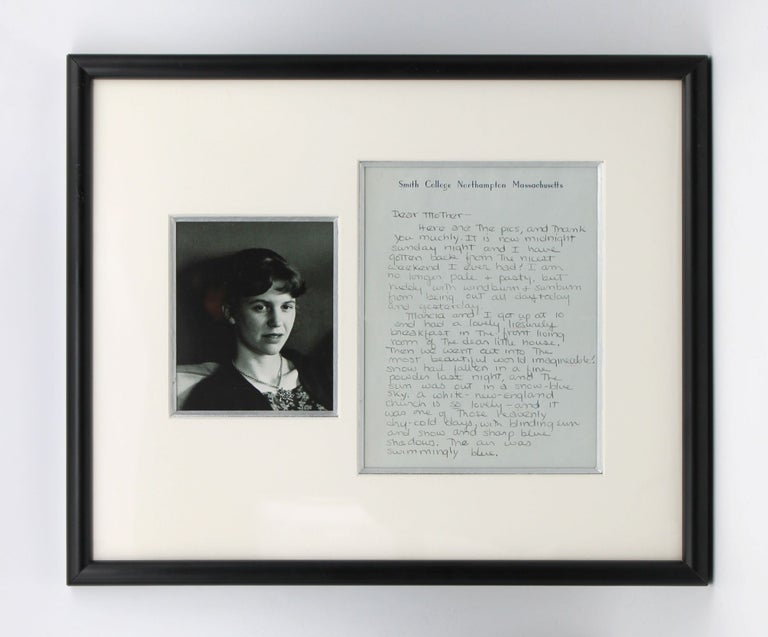 Smith College Northampton Massachusetts
Dear Mother —
Here are the pics, and thank
you muchly. It is now midnight
sunday night and I have
gotten back from the nicest
weekend I ever had! I am
no longer pale & pasty, but
ruddy with windburn & sunburn
from being out all day today
and yesterday.
Marcia and I got up at 10
and had a lovely liesurely
breakfast in the front living
room of the dear little house.
Then we went out into the
most beautiful world imagineable!
snow had fallen in a fine
powder last night, and the
sun was out in a snow-blue
sky, a white new-england
church is so lovely — and it
was one of those heavenly
dry-cold days, with blinding sun
and snow and sharp blue
shadows. The air was
swimmingly blue.